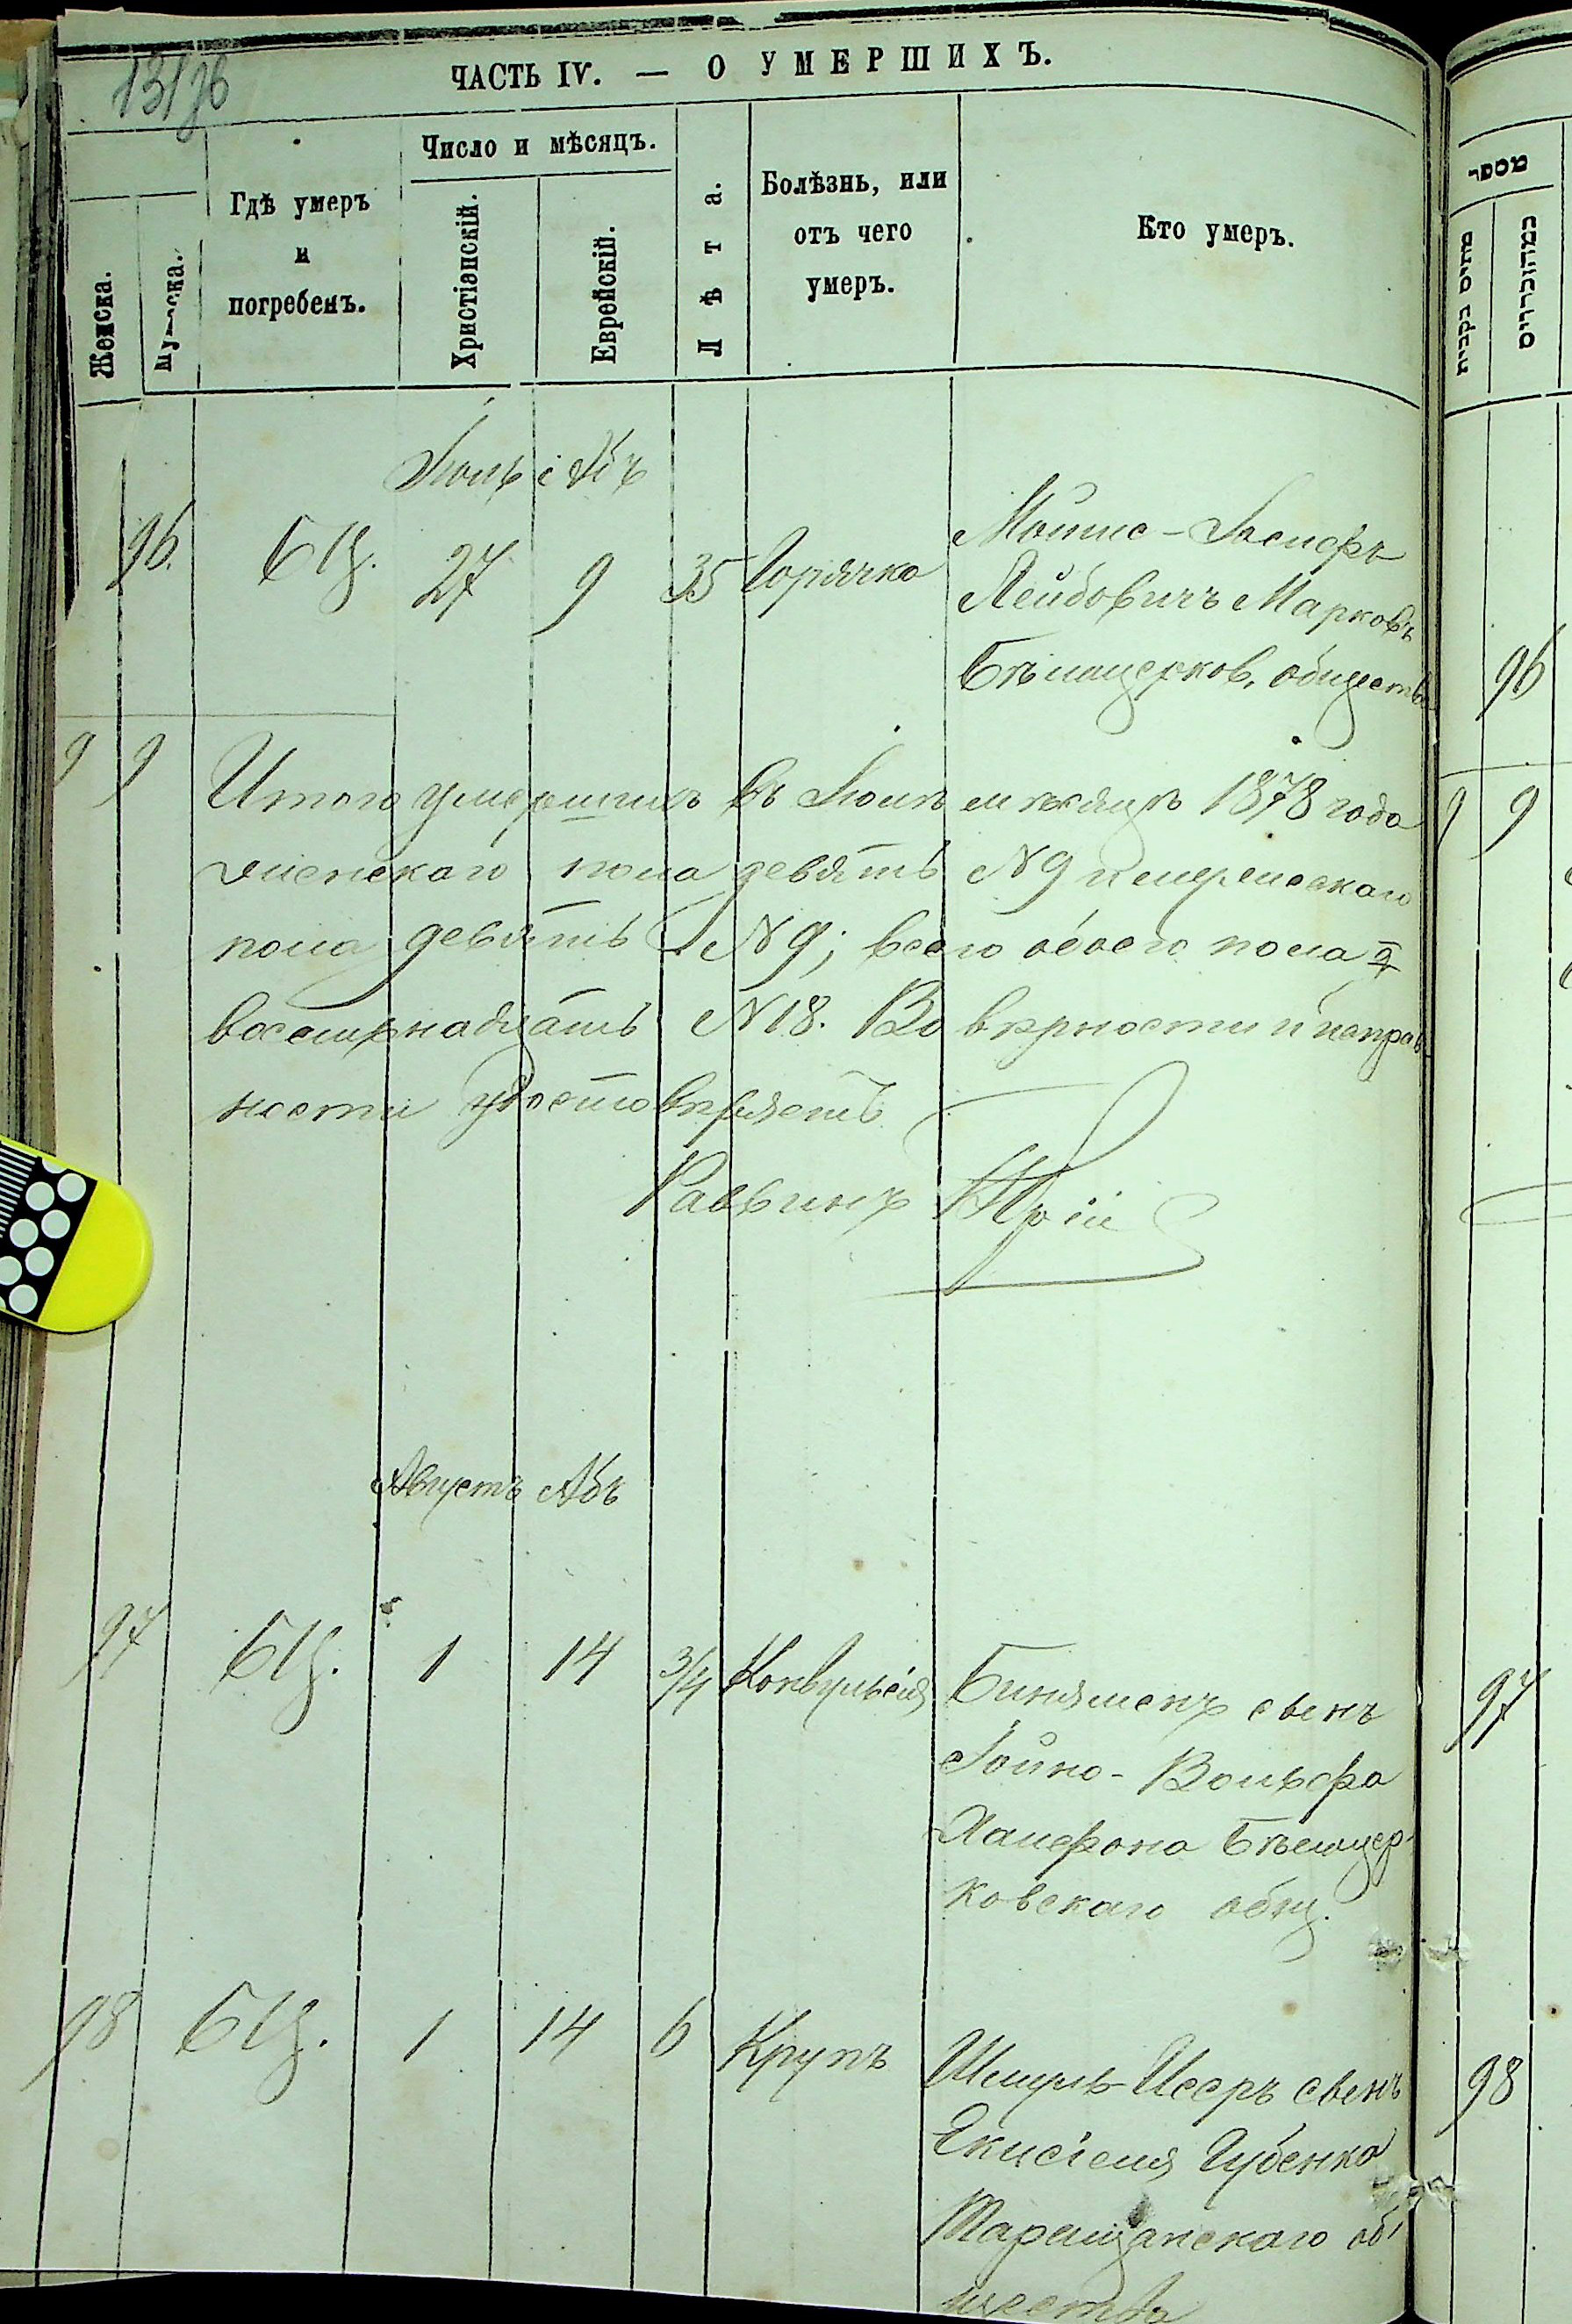 13/76
ЧАСТЬ IV. — О УМЕРШИХЪ.
Женска.
Мужска.
Гдѣ умеръ
и
погребенъ.
Число и мѣсяцъ.
Христіанскій.
Еврейскій.
Лѣта.
Болѣзнь, или
отъ чего
умеръ.
Кто умеръ.
מספר
מתים נקבות
Іюль Абъ
96. БЦ. 27 9 35 Горячка
Лейбовичъ Марковъ
Бѣлоцерков. общества
96
9 9 Итого умершихъ въ Іюлѣ мѣсяцѣ 1878 года
женскаго пола девять N 9 и мужескаго
пола девять N 9; всего обоего пола
восемьнадцать N 18. Во вѣрности и исправ-
ности удостовѣряетъ
9 9
Раввинъ
Августъ Абъ
97 БЦ. 1 14 3/4 Конвульсія Биняменъ сынъ
Вольфа
Бѣлоцер-
ковскаго общ.
97
98 БЦ. 1 14 6 Крупъ Шмуль-Исеръ сынъ
Екисіеля Губенко
Таращанскаго об-
щества
98